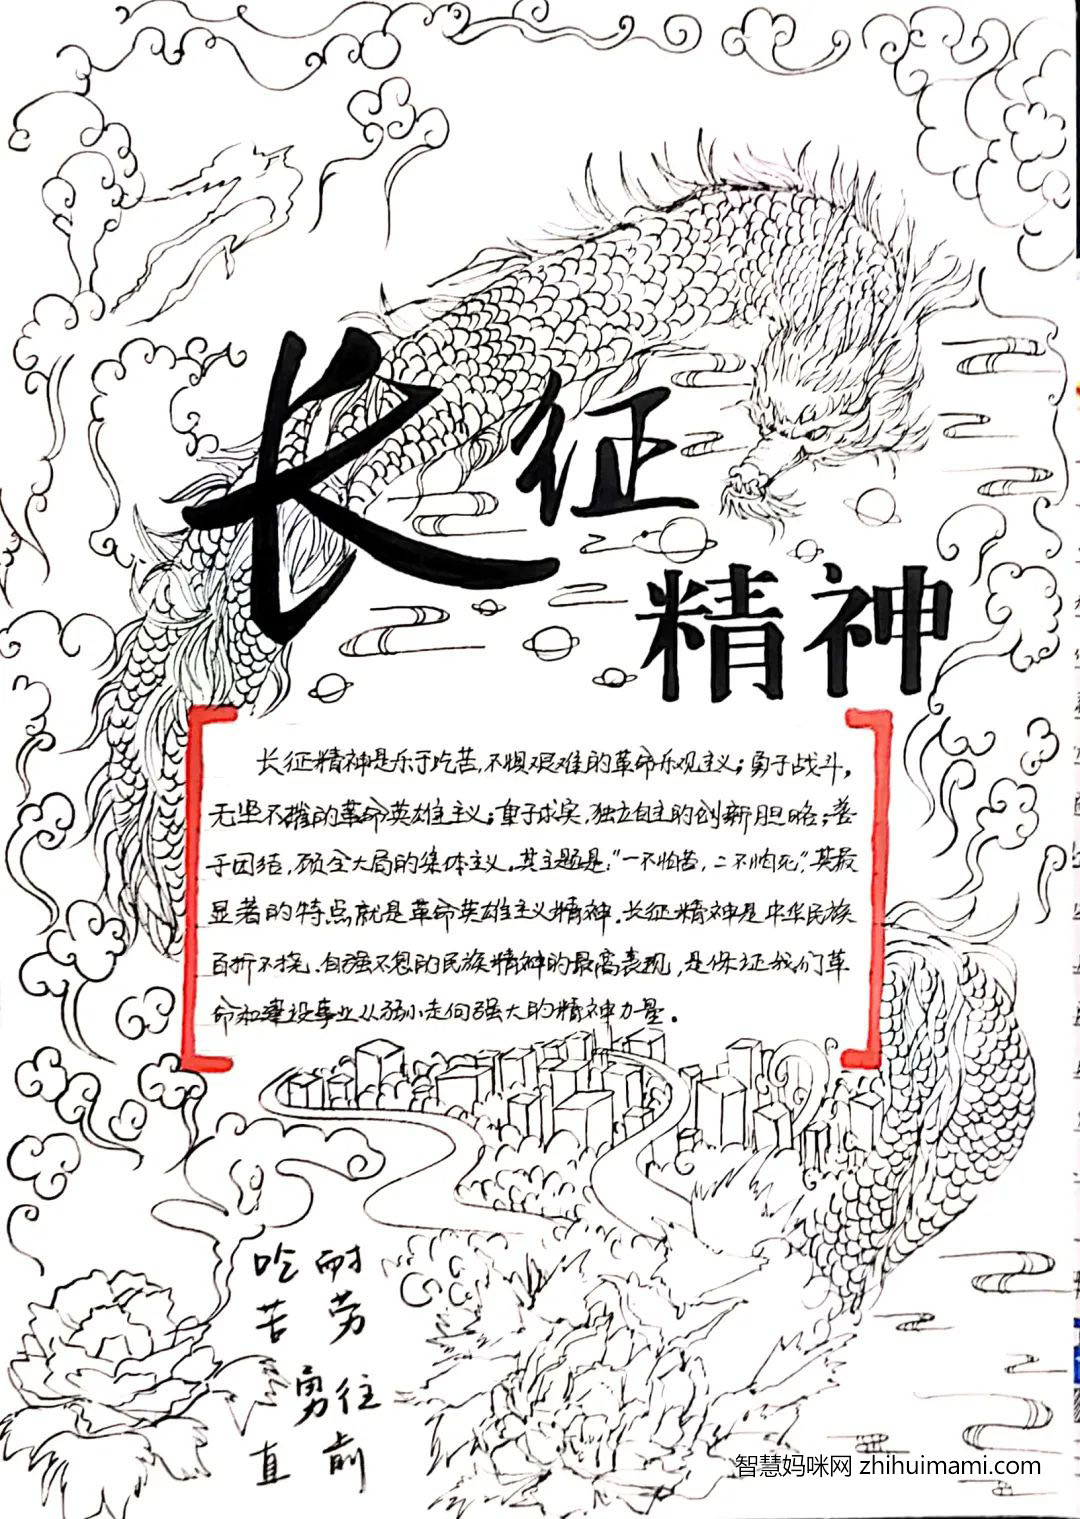 长征
精神
长征精神是乐于吃苦,不惧艰难的革命乐观主义;勇于战斗,
无坚不摧的革命英雄主义;重于求实,独立自主的创新胆略;善
于团结,顾全大局的集体主义。其主题是:"一不怕苦,二不怕死",其最
显著的特点就是革命英雄主义精神.长征精神是中华民族
百折不挠.自强不息的民族精神的最高表现,是保证我们革
命和建设事业从弱小走向强大的精神力量。
吃 耐
苦 劳
勇 往
直 前
智慧妈咪网 zhihuimami.com